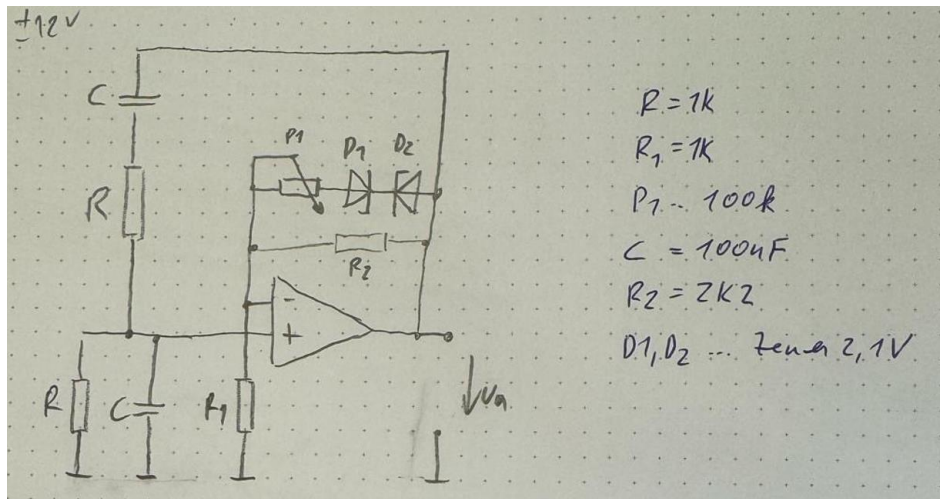 ±12V
C
P1
D1
D2
R
R2
-
+
R
C
R1
Ua
R = 1k
R1 = 1k
P1 .. 100k
C = 100nF
R2 = 2k2
D1, D2 ... Zener 2,1V